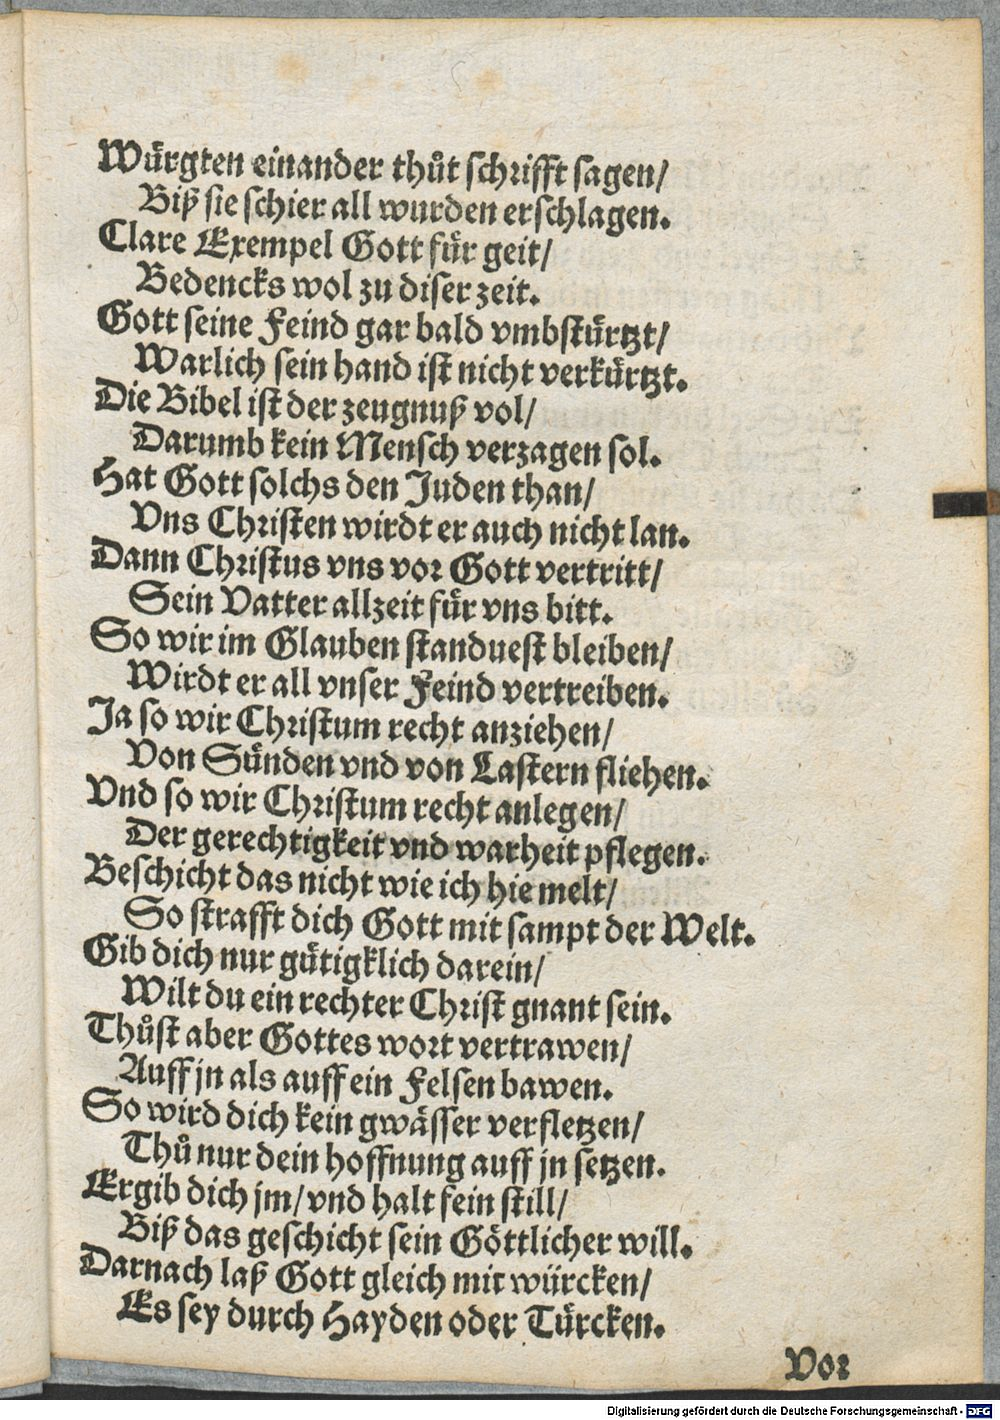 Würgten einander thůt schrifft sagen/
Biß sie schier all wurden erschlagen.
Clare Exempel Gott für geit/
Bedencks wol zu diser zeit.
Gott seine Feind gar bald vmbstürtzt/
Warlich sein hand ist nicht verkürtzt.
Die Bibel ist der zeugnuß vol/
Darumb kein Mensch verzagen sol.
Hat Gott solchs den Juden than/
Vns Christen wirdt er auch nicht lan.
Dann Christus vns vor Gott vertritt/
Sein Vatter allzeit für vns bitt.
So wir im Glauben standuest bleiben/
Wirdt er all vnser Feind vertreiben.
Ja so wir Christum recht anziehen/
Von Sünden vnd von Lastern fliehen.
Vnd so wir Christum recht anlegen/
Der gerechtigkeit vnd warheit pflegen.
Beschicht das nicht wie ich hie melt/
So strafft dich Gott mit sampt der Welt.
Gib dich nur gütigklich darein/
Wilt du ein rechter Christ gnant sein.
Thůst aber Gottes wort vertrawen/
Auff jn als auff ein Felsen bawen.
So wird dich kein gwässer verfletzen/
Thů nur dein hoffnung auff jn setzen.
Ergib dich jm/ vnd halt fein still/
Biß das geschicht sein Göttlicher will.
Darnach laß Gott gleich mit würcken/
Es sey durch Hayden oder Türcken.
Vor
Digitalisierung gefördert durch die Deutsche Forschungsgemeinschaft - DFG